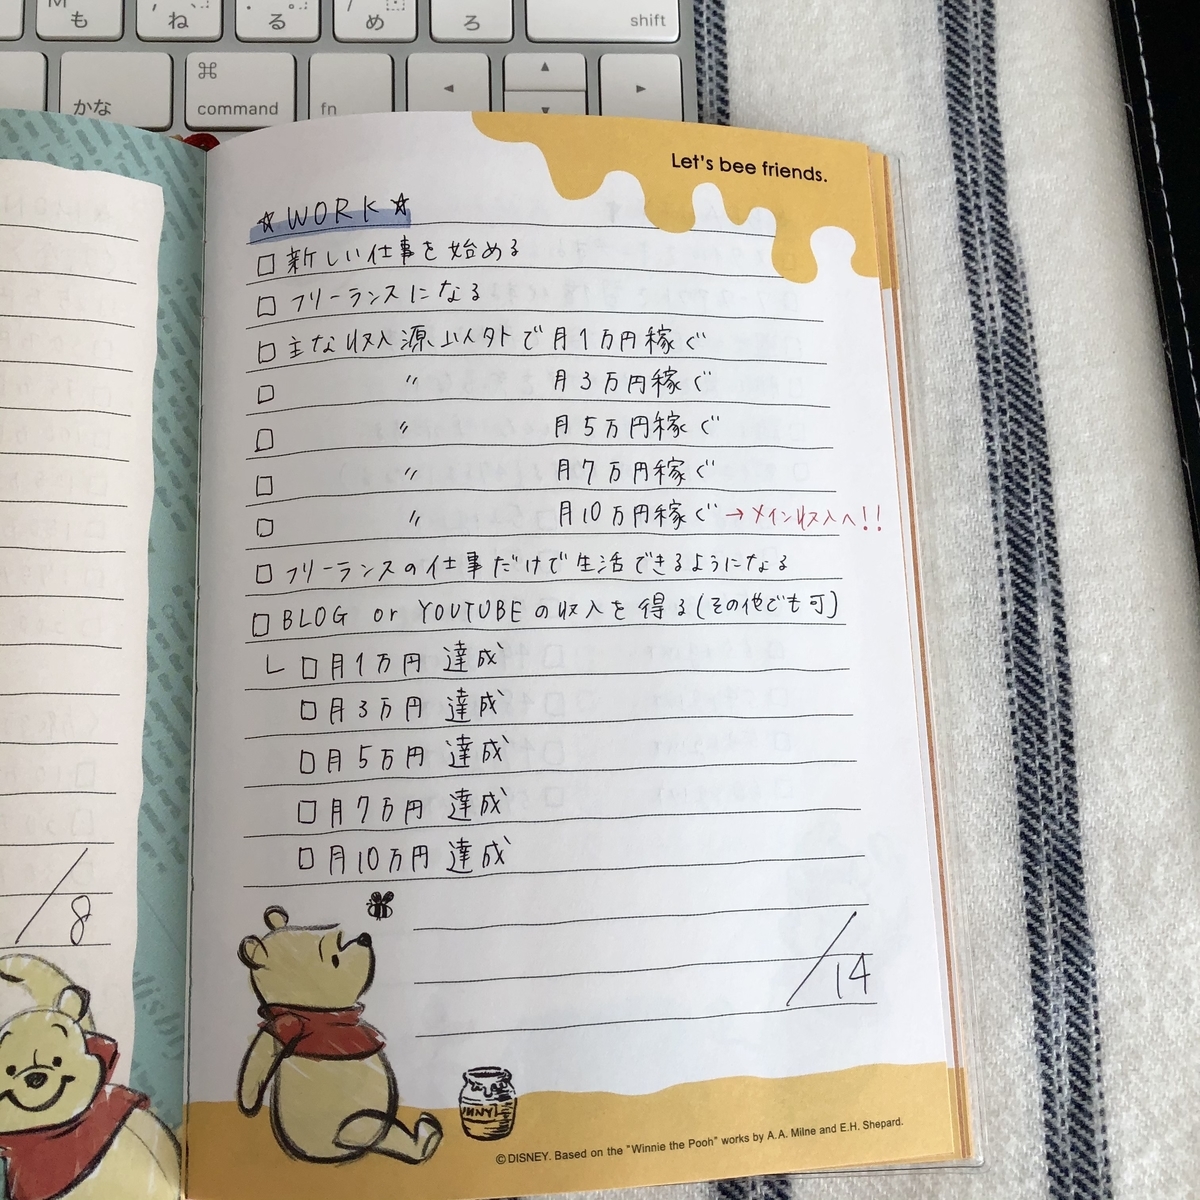 も
ね
る
め
ろ
shift
かな
⌘
command
fn
Let's bee friends.
☆WORK☆
□ 新しい仕事を始める
□ フリーランスになる
□ 主な収入源以外で月1万円稼ぐ
□ 〃 月3万円稼ぐ
□ 〃 月5万円稼ぐ
□ 〃 月7万円稼ぐ
□ 〃 月10万円稼ぐ→メイン収入へ!!
□ フリーランスの仕事だけで生活できるようになる
□ BLOG or YOUTUBEの収入を得る(その他でも可)
└ □ 月1万円 達成
□ 月3万円 達成
□ 月5万円 達成
□ 月7万円 達成
□ 月10万円 達成
/8
/14
HUNNY
©DISNEY. Based on the "Winnie the Pooh" works by A.A. Milne and E.H. Shepard.